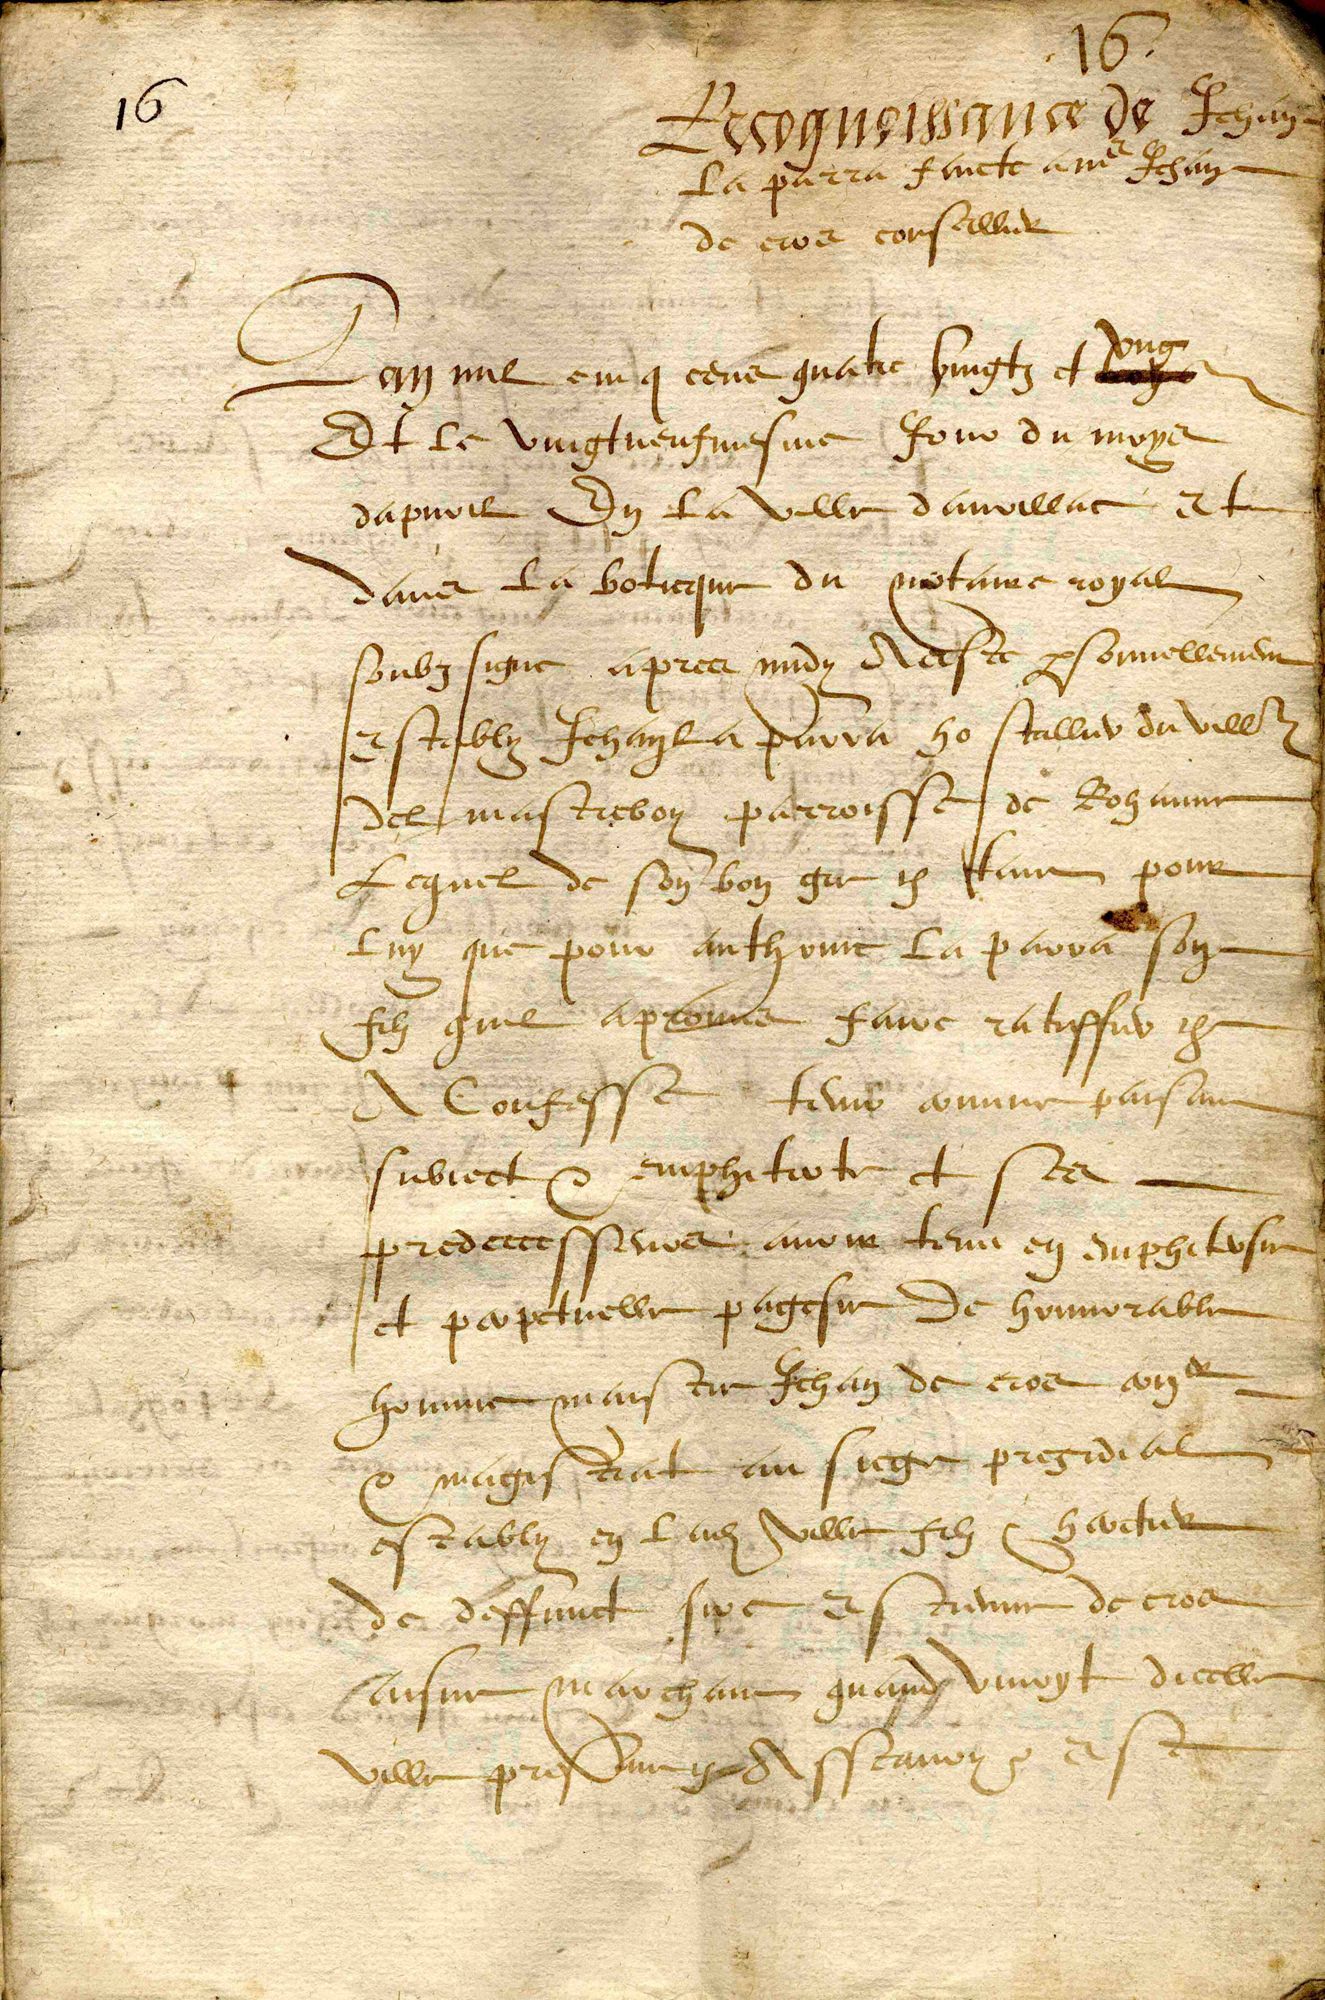 .16.
16
Recognoissance de Jehan
La parra faicte a mre Jehan
de cros conseillier
Lan mil cinq cens quatre vingtz et ung
Et le vingtneufiesme Jour du moys
dapvril En la ville daurillac et
dans la boticque du notaire royal
soubz signe apres midy A este personnellement
estably Jehan La parra hostellier du ville
del mastrebon parroisse de Rohanne
Lequel de son bon gre tant pour
luy que pour anthoine La parra son
filz quil a promis faire ratiffier
A Confesse tenir comme paisant
subiect & emphiteote et ses
predecesseurs avoir tenu en emphiteosie
et perpetuelle pagesie De honnorable
homme maistre Jehan de cros coner
& magistrat au siege presidial
estably en lad ville filz & heretier
de deffunct sire Estienne de cros
marchant quand vivoyt dicelle
ville present Assavoir est